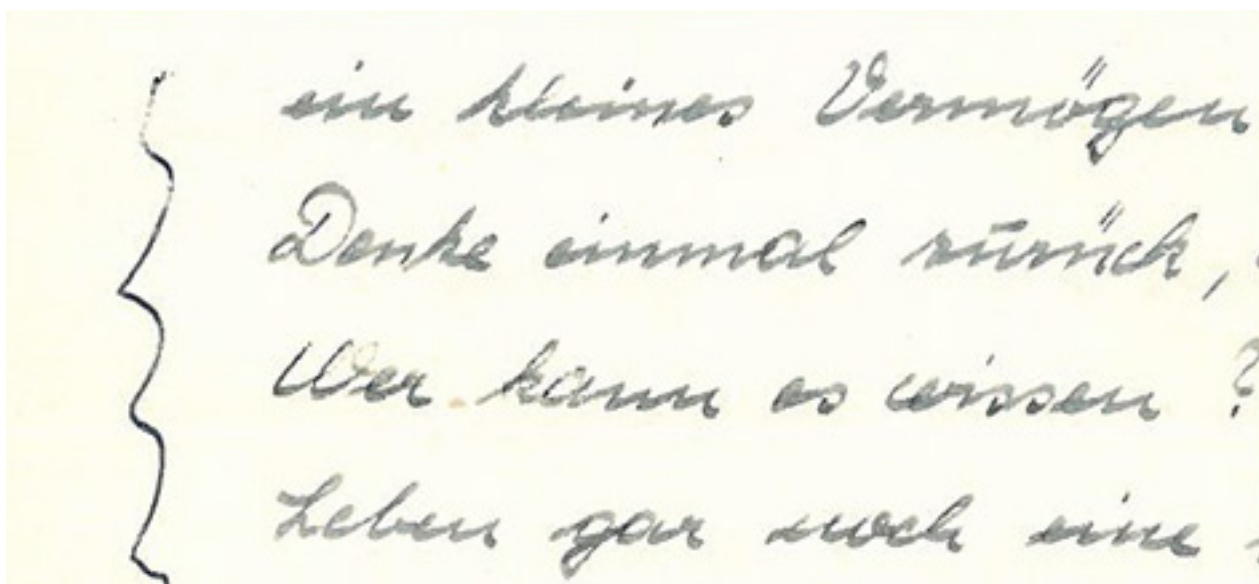 ein kleines Vermögen
Denke einmal zurück,
Wer kann es wissen ?
Leben gar noch eine